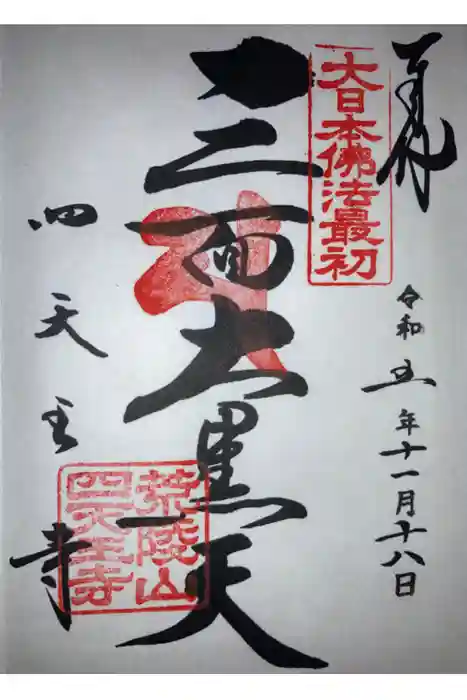 奉拝
大日本佛法最初
令和五年十一月十八日
三面大黒天
荒陵山
四天王寺
四天王寺